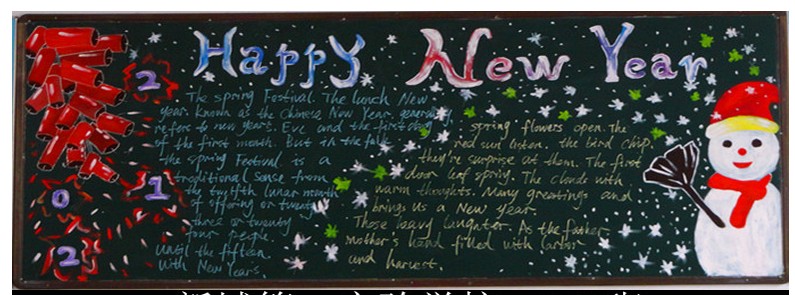 Happy New Year
2
0
1
2
The spring Festival. The lunch New
year. known as the Chinese New Year, generally
refers to new years. Eve and the first day
of the first month. But in the folk
the spring Festival is a
traditional sense from
the twelfth lunar month
of offering or twenty
three or twenty
four people.
Until the fifteen
With New Years.
spring flowers open. The
red sun listen. the bird chip.
they're surprise at them. The first
door leaf spring. The clouds with
warm thoughts. Many greetings and
brings us a New year.
Those heavy laughter. As the father
mother's hand filled with
and harvest.